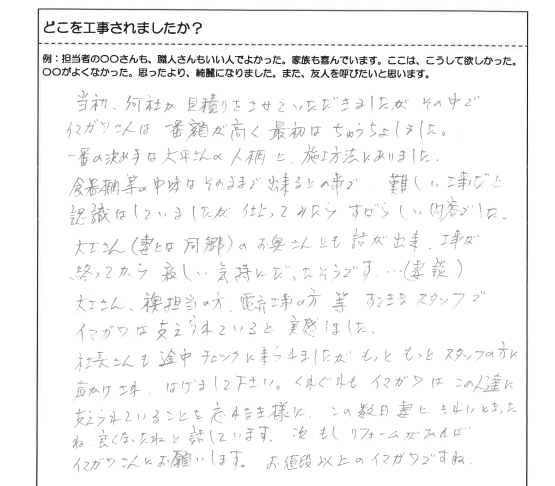 どこを工事されましたか？
例：担当者の〇〇さんも、職人さんもいい人でよかった。家族も喜んでいます。ここは、こうして欲しかった。
〇〇がよくなかった。思ったより、綺麗になりました。また、友人を呼びたいと思います。
当初、何社か見積りをさせていただきましたが その中で
イマガワさんは 一番額が高く 最初は ちゅうちょしました。
一番の決め手は大平さんの人柄と、施工方法にありました、
食器棚等の中味はそのままで 出来るとの事で 難しい工事だと
認識はしていましたが 仕上ってみたら すばらしい内容でした、
大工さん(妻とは同郷)のお奥さんとも 話が出来、工事が
終ってから 寂しい気持になったそうです…(妻談)
大工さん、裸担当の方、電気工事の方 等 すてきなスタッフで
イマガワは支えられていると 実感しました。
社長さんも途中チェックに来られましたが もっと もっと スタッフの方に
声かけされ、はげまして下さい。くれぐれも イマガワは この人達に
支えられていることを 忘れな様に、この数日 妻と きれいになった
ね、良くなったねと 話しています。次 もし リフォームがあれば
イマガワさんにお願いします。 お値段以上のイマガワですね